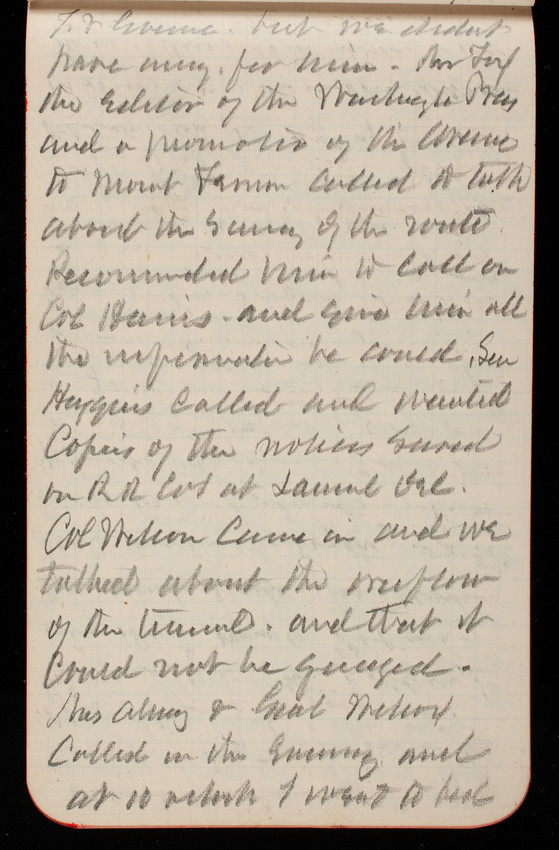 but we didnt
have any for him. Mr Ford
the Editor of the Washington Press
and a promoter of the Avenue
to Mount Vernon called to talk
about the Survey of the route.
Recommended him to call on
Col Hains. and give him all
the information he could. Sen
Higgins called and wanted
Copies of the notices Served
on R R Cos at Laurel Del.
Col Wilson Came in and we
talked about the overflow
of the tunnel. and that it
Could not be guaged.
& Genl Wilcox
Called in the Evening and
at 10 oclock I went to bed